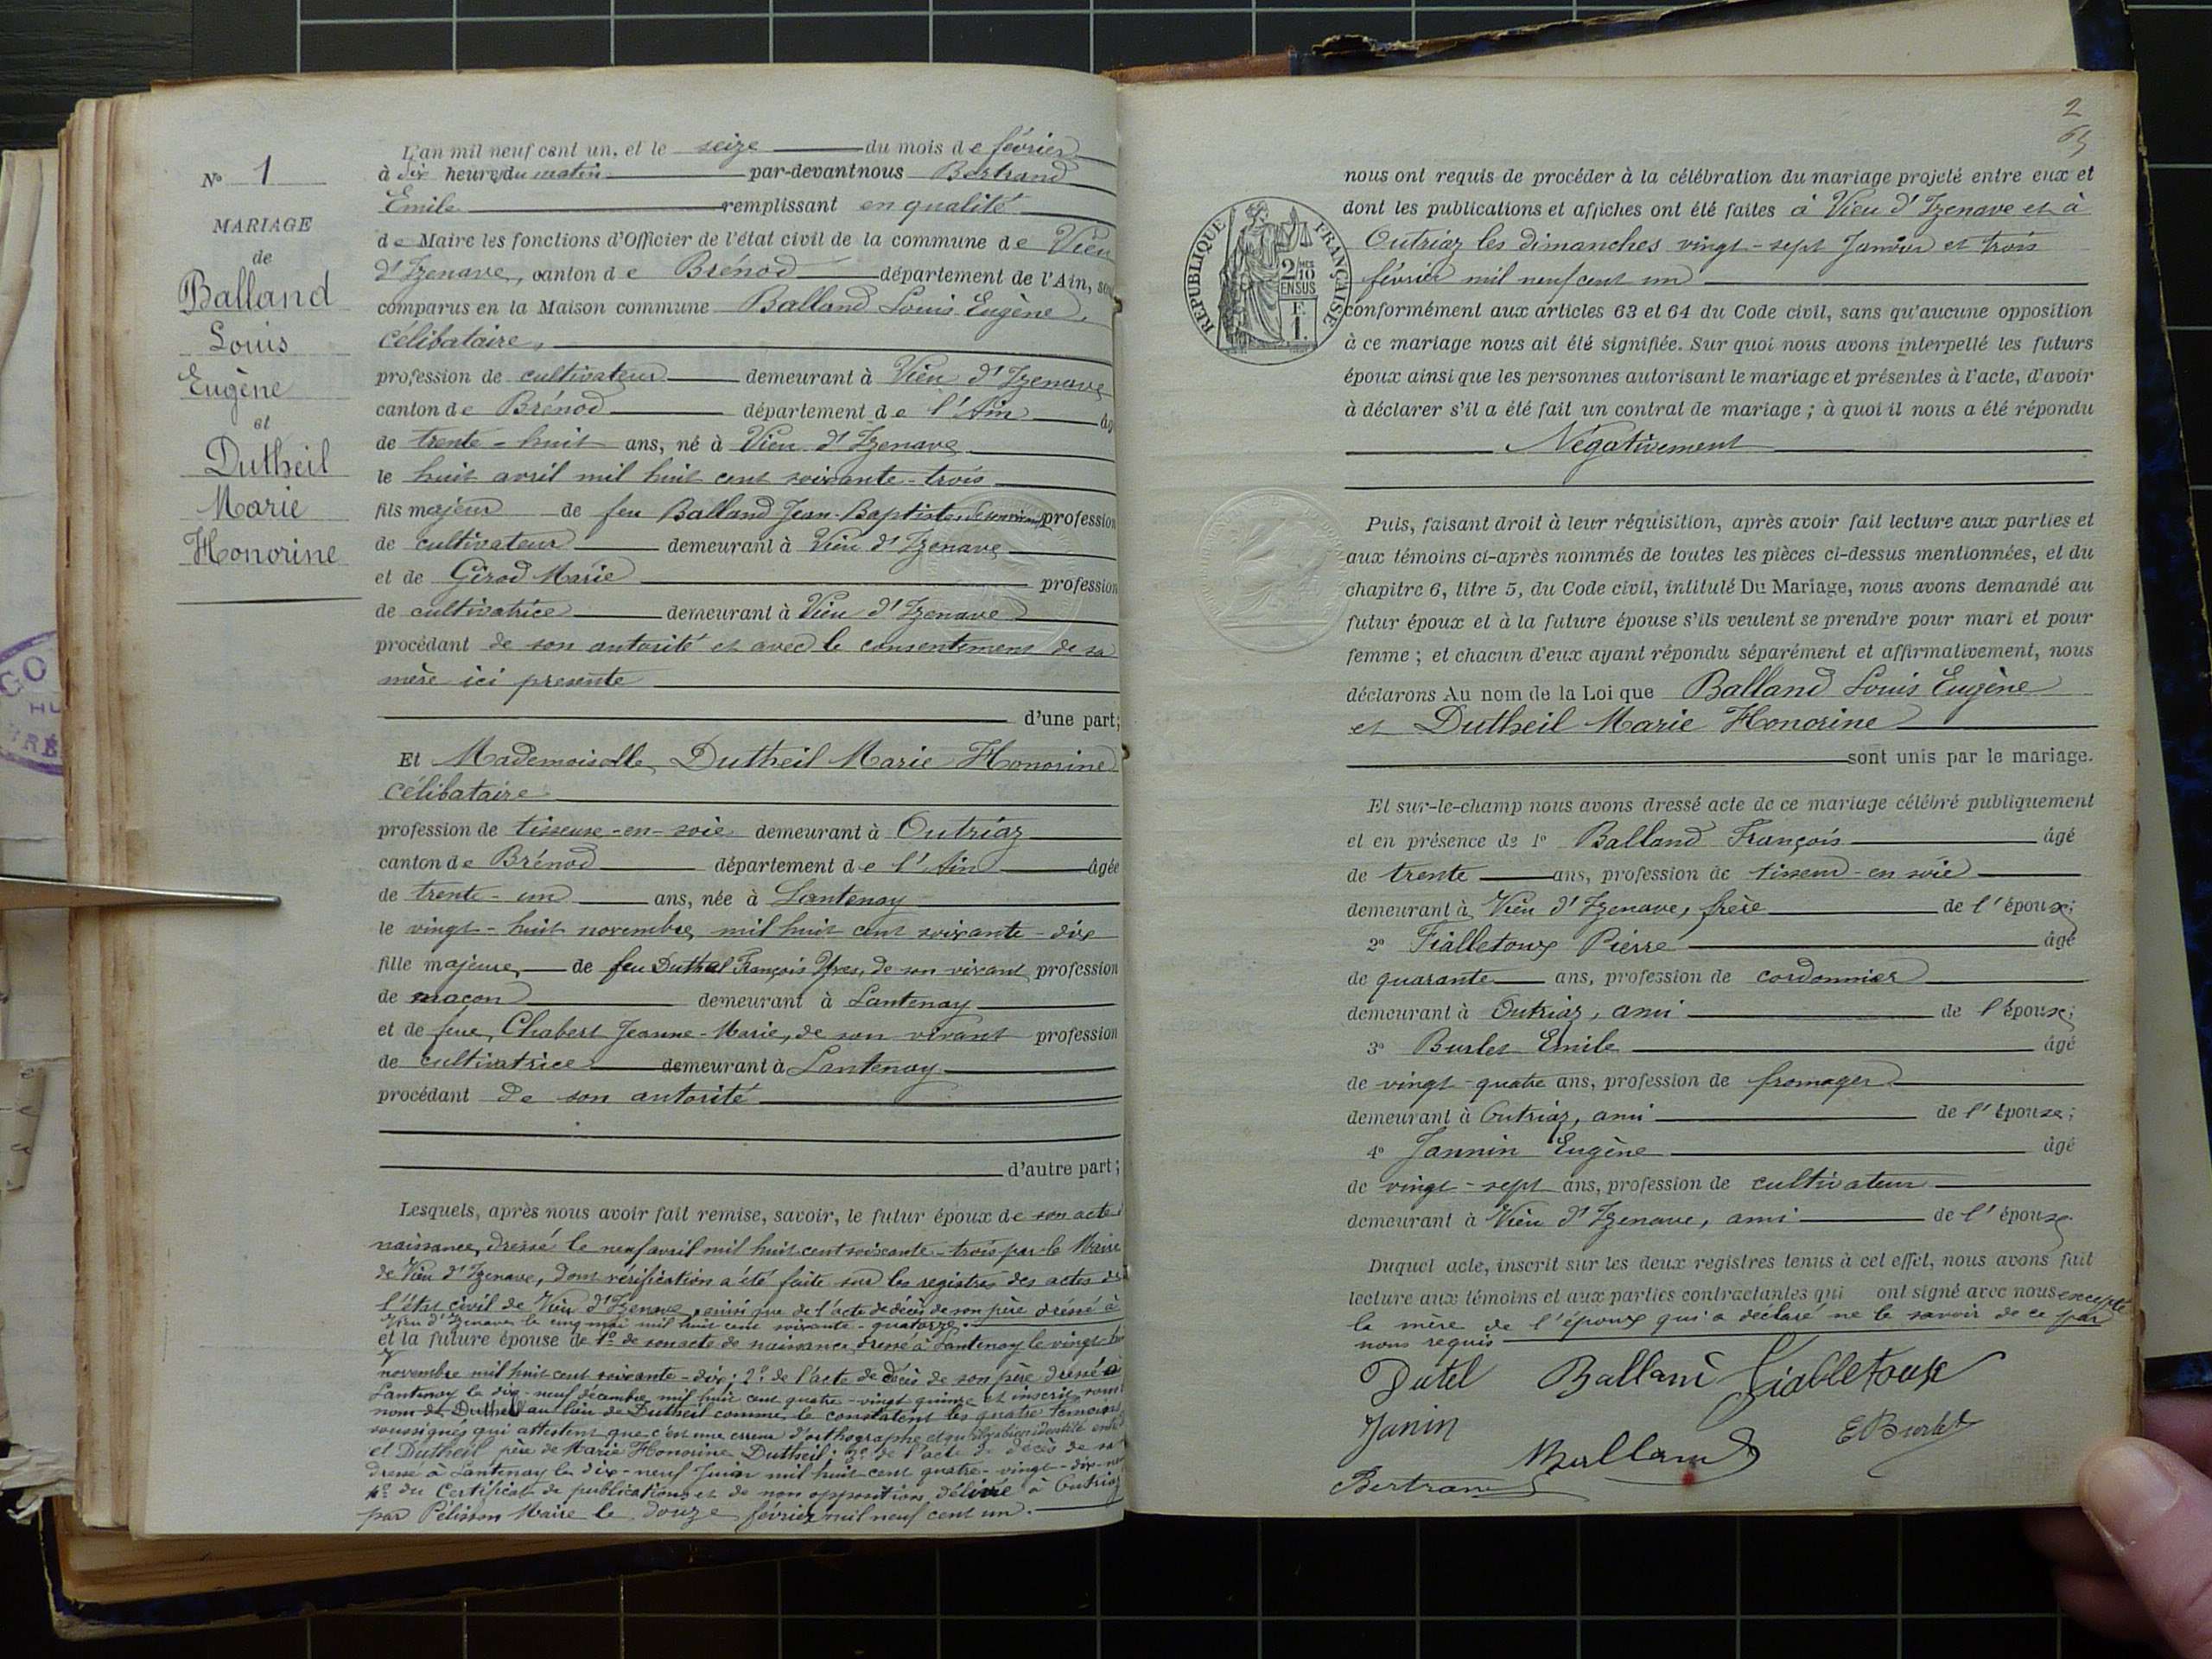 N° 1
MARIAGE
de
Balland
Louis
Eugène
et
Dutheil
Marie
Honorine
L'an mil neuf cent un, et le seize du mois de février
à dix heures du matin par-devant nous Bertrand
Emile remplissant en qualité
de Maire les fonctions d'Officier de l'état civil de la commune de Vieu
d'Izenave, canton de Brénod département de l'Ain, sont
comparus en la Maison commune Balland Louis Eugène,
célibataire,
profession de cultivateur demeurant à Vieu d'Izenave
canton de Brénod département de l'Ain âgé
de trente-huit ans, né à Vieu d'Izenave
le huit avril mil huit cent soixante-trois
fils majeur de feu Balland Jean-Baptiste de son vivant profession
de cultivateur demeurant à Vieu d'Izenave
et de Girod Marie profession
de cultivatrice demeurant à Vieu d'Izenave
procédant de son autorité et avec le consentement de sa
mère ici présente
d'une part;
Et Mademoiselle Dutheil Marie Honorine
célibataire
profession de tisseuse-en-soie demeurant à Outriaz
canton de Brénod département de l'Ain âgée
de trente-un ans, née à Lantenay
le vingt-huit novembre mil huit cent soixante-dix
fille majeure de feu Duthel François Yves, de son vivant profession
de maçon demeurant à Lantenay
et de feue Chabert Jeanne-Marie, de son vivant profession
de cultivatrice demeurant à Lantenay
procédant de son autorité
d'autre part;
Lesquels, après nous avoir fait remise, savoir, le futur époux de son acte
naissance, dressé le neuf avril mil huit cent soixante-trois par le Maire
de Vieu d'Izenave, dont vérification a été faite sur les registres des actes de
l'état civil de Vieu d'Izenave, ainsi que de l'acte de décès de son père dressé à
Vieu d'Izenave le cinq mai mil huit cent soixante-quatorze.
et la future épouse de 1° de son acte de naissance, dressé à Lantenay le vingt-
novembre mil huit cent soixante-dix; 2° de l'acte de décès de son père dressé à
Lantenay le dix-neuf décembre mil huit cent quatre-vingt quinze et inscrit sous
nom de Duthel au lieu de Dutheil comme le constatent les quatre témoins
soussignés qui attestent que c'est une erreur d'orthographe et qu'il y a bien identité entre
et Dutheil, père de Marie Honorine Dutheil; 3° de l'acte de décès de sa
dressé à Lantenay le dix-neuf Juin mil huit cent quatre-vingt-dix-
4° du Certificat de publications et de non opposition délivré à Outriaz
par Pélisson Maire le douze février mil neuf cent un.
2
65
RÉPUBLIQUE FRANÇAISE
2/10 EN SUS
F.
1.
nous ont requis de procéder à la célébration du mariage projeté entre eux et
dont les publications et affiches ont été faites à Vieu d'Izenave et à
Outriaz les dimanches vingt-sept Janvier et trois
février mil neuf cent un
conformément aux articles 63 et 64 du Code civil, sans qu'aucune opposition
à ce mariage nous ait été signifiée. Sur quoi nous avons interpellé les futurs
époux ainsi que les personnes autorisant le mariage et présentes à l'acte, d'avoir
à déclarer s'il a été fait un contrat de mariage; à quoi il nous a été répondu
Négativement
Puis, faisant droit à leur réquisition, après avoir fait lecture aux parties et
aux témoins ci-après nommés de toutes les pièces ci-dessus mentionnées, et du
chapitre 6, titre 5, du Code civil, intitulé Du Mariage, nous avons demandé au
futur époux et à la future épouse s'ils veulent se prendre pour mari et pour
femme; et chacun d'eux ayant répondu séparément et affirmativement, nous
déclarons Au nom de la Loi que Balland Louis Eugène
et Dutheil Marie Honorine
sont unis par le mariage.
Et sur-le-champ nous avons dressé acte de ce mariage célébré publiquement
et en présence de 1° Balland François âgé
de trente ans, profession de tisseur-en soie
demeurant à Vieu d'Izenave, frère de l'époux;
2° Fialletoux Pierre âgé
de quarante ans, profession de cordonnier
demeurant à Outriaz, ami de l'épouse;
3° Burlet Emile âgé
de vingt-quatre ans, profession de fromager
demeurant à Outriaz, ami de l'épouse;
4° Jannin Eugène âgé
de vingt-sept ans, profession de cultivateur
demeurant à Vieu d'Izenave, ami de l'épouse
Duquel acte, inscrit sur les deux registres tenus à cet effet, nous avons fait
lecture aux témoins et aux parties contractantes qui ont signé avec nous excepté
la mère de l'époux qui a déclaré ne le savoir de ce par
nous requis
Dutel Balland Fialletoux
Janin Balland EBurlet
Bertrand